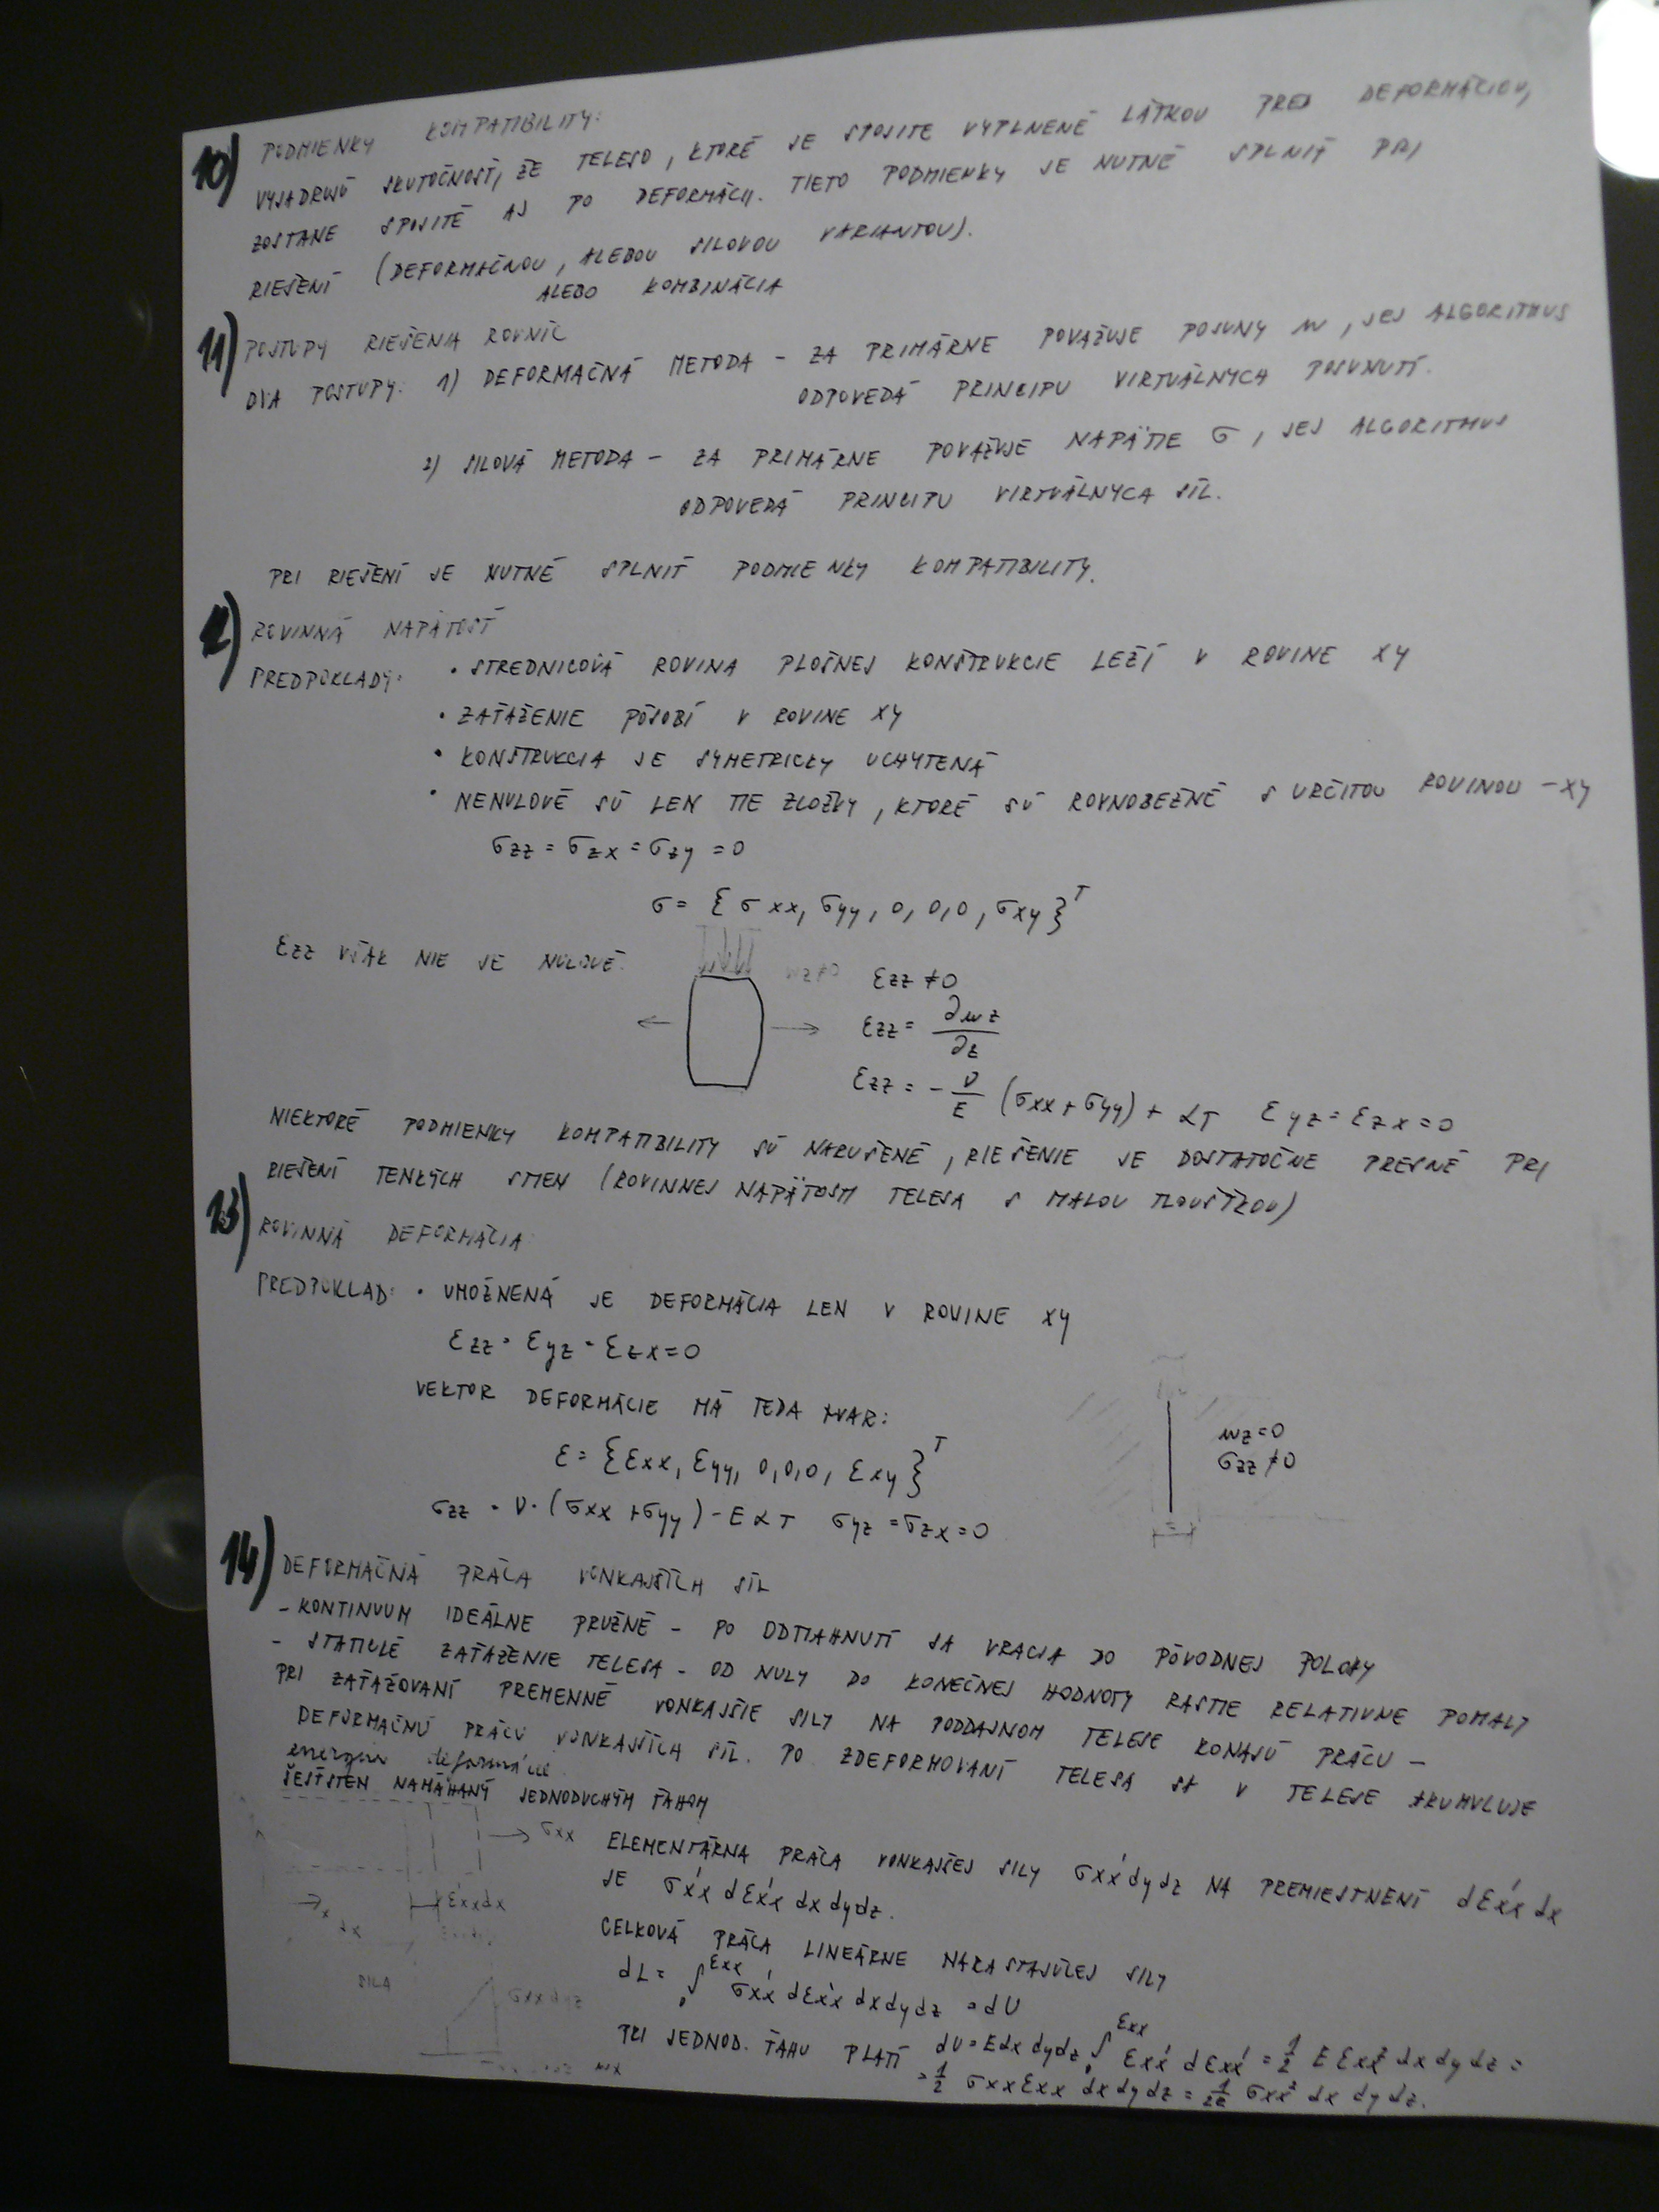 10) PODMIENKY KOMPATIBILITY:
VYJADRUJÚ SKUTOČNOSŤ, ŽE TELESO, KTORÉ JE SPOJITE VYPLNENÉ LÁTKOU PRED DEFORMÁCIOU,
ZOSTANE SPOJITÉ AJ PO DEFORMÁCII. TIETO PODMIENKY JE NUTNÉ SPLNIŤ PRI
RIEŠENÍ (DEFORMAČNOU, ALEBOU SILOVOU VARIANTOU).
ALEBO KOMBINÁCIA
11) POSTUPY RIEŠENIA ROVNÍC
DVA POSTUPY: 1) DEFORMAČNÁ METODA - ZA PRIMÁRNE POVAŽUJE POSUNY u, JEJ ALGORITHUS
ODPOVEDÁ PRINCIPU VIRTUÁLNYCH POSUNUTÍ.
2) SILOVÁ METODA - ZA PRIMÁRNE POVAŽUJE NAPÄTIE σ, JEJ ALGORITHUS
ODPOVEDÁ PRINCIPU VIRTUÁLNYCH SÍL.
PRI RIEŠENÍ JE NUTNÉ SPLNIŤ PODMIENKY KOMPATIBILITY.
12) ROVINNÁ NAPÄTOSŤ
PREDPOKLADY: • STREDNICOVÁ ROVINA PLOŠNEJ KONŠTRUKCIE LEŽÍ V ROVINE XY
• ZAŤAŽENIE PÔSOBÍ V ROVINE XY
• KONŠTRUKCIA JE SYMETRICKY UCHYTENÁ
• NENULOVÉ SÚ LEN TIE ZLOŽKY, KTORÉ SÚ ROVNOBEŽNÉ S URČITOU ROVINOU - XY
σzz = σzx = σzy = 0
σ = {σxx, σyy, 0, 0, 0, σxy}ᵀ
εzz VŠAK NIE JE NULOVÉ.
uz≠0 εzz ≠ 0
εzz = ∂uz/∂z
εzz = -ν/E (σxx + σyy) + αT εyz = εzx = 0
NIEKTORÉ PODMIENKY KOMPATIBILITY SÚ NARUŠENÉ, RIEŠENIE JE DOSTATOČNE PRESNÉ PRI
RIEŠENÍ TENKÝCH STIEN (ROVINNEJ NAPÄTOSTI TELESA S MALOU TLOUŠŤKOU)
13) ROVINNÁ DEFORMÁCIA
PREDPOKLAD: • UMOŽNENÁ JE DEFORMÁCIA LEN V ROVINE XY
εzz = εyz = εzx = 0
VEKTOR DEFORMÁCIE MÁ TEDA TVAR:
ε = {εxx, εyy, 0, 0, 0, εxy}ᵀ
uz = 0
σzz ≠ 0
σzz = ν·(σxx + σyy) - EαT σyz = σzx = 0
14) DEFORMAČNÁ PRÁCA VONKAJŠÍCH SÍL
- KONTINUUM IDEÁLNE PRUŽNÉ - PO ODTIAHNUTÍ SA VRACIA DO PÔVODNEJ POLOHY
- STATICKÉ ZAŤAŽENIE TELESA - OD NULY DO KONEČNEJ HODNOTY RASTIE RELATIVNE POMALY
PRI ZAŤAŽOVANÍ PREMENNÉ VONKAJŠIE SILY NA PODDAJNOM TELESE KONAJÚ PRÁCU -
DEFORMAČNÚ PRÁCU VONKAJŠÍCH SÍL. PO ZDEFORMOVANÍ TELESA SA V TELESE AKUMULUJE
energia deformácie.
ŠESŤSTEN NAMÁHANÝ JEDNODUCHÝM ŤAHOM
σxx
ε'xx dx
x
dx
SILA
σxx dydz
ELEMENTÁRNA PRÁCA VONKAJŠEJ SILY σxx' dydz NA PREMIESTNENÍ dεxx' dx
JE σxx' dεxx' dx dydz.
CELKOVÁ PRÁCA LINEÁRNE NARASTAJÚCEJ SILY
dL = ∫₀^εxx σxx' dεxx' dxdydz = dU
PRI JEDNOD. ŤAHU PLATÍ dU = Edx dydz ∫₀^εxx εxx' dεxx' = 1/2 E εxx² dx dy dz =
= 1/2 σxx εxx dx dy dz = 1/2E σxx² dx dy dz.